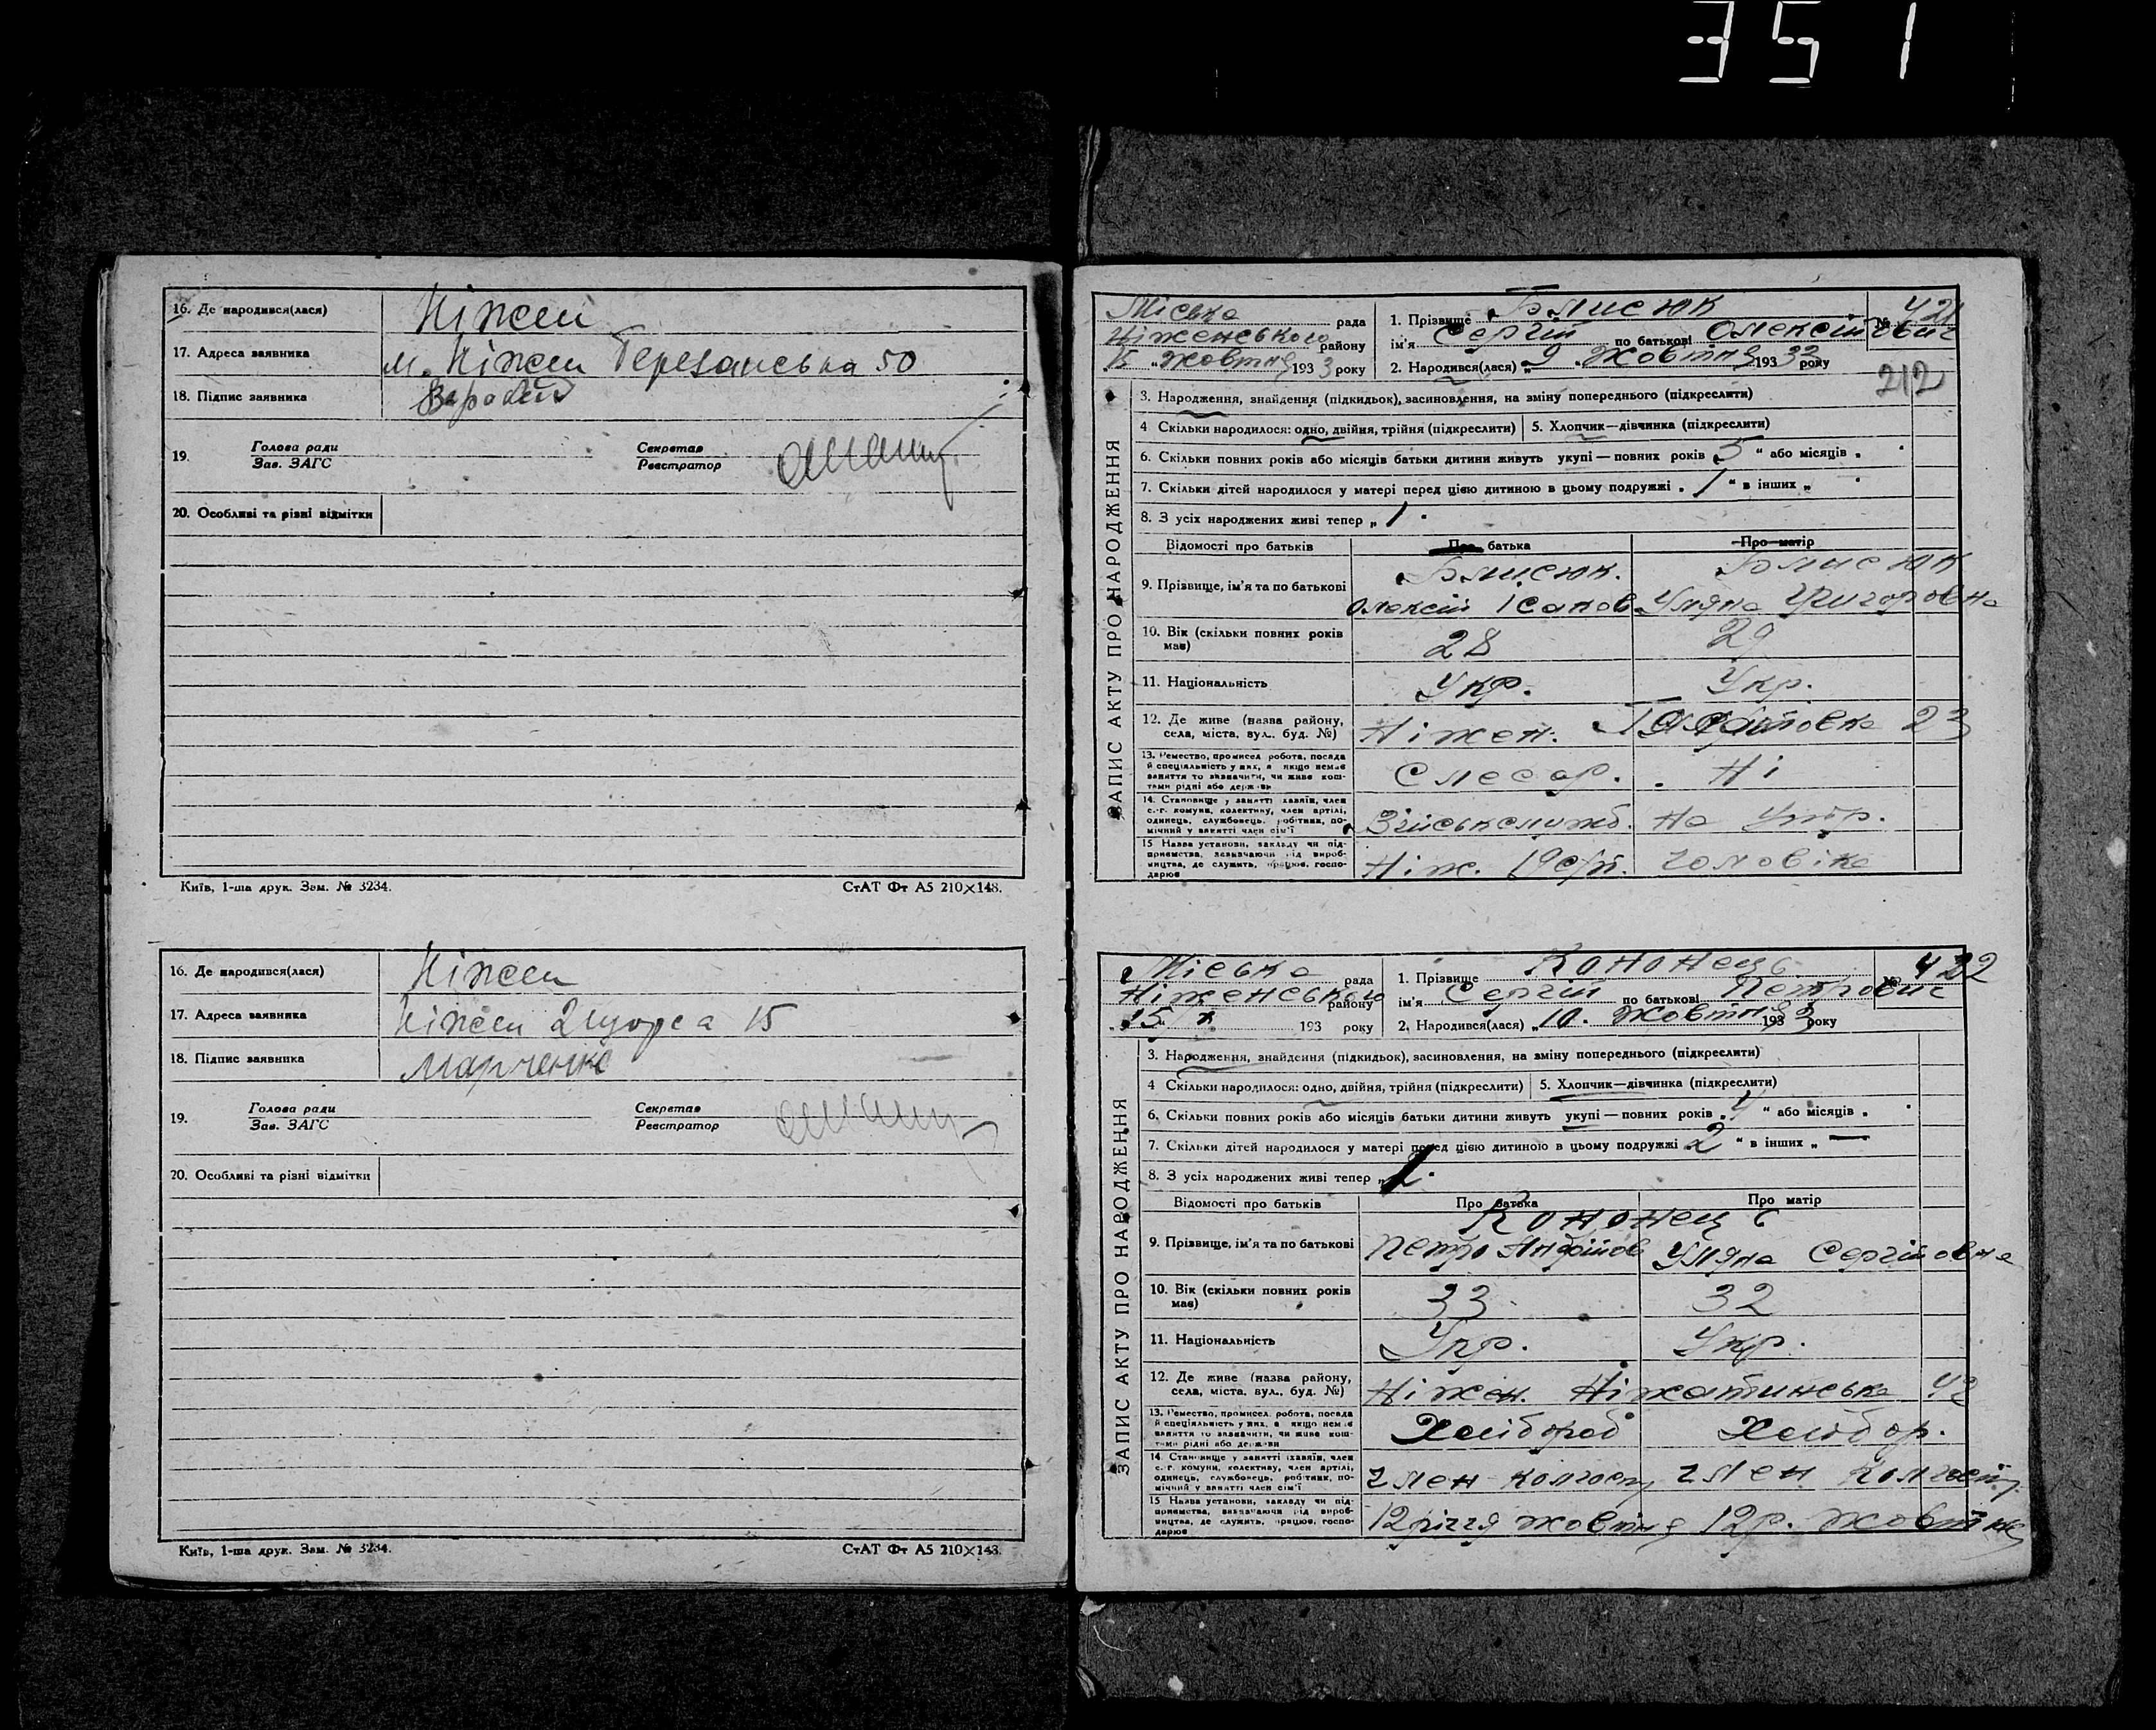 351
16. Де народився(лася) Ніжен
17. Адреса заявника м. Ніжен Березанська 50
18. Підпис заявника
19. Голова ради Секретар
Зав. ЗАГС Реєстратор
20. Особливі та різні відмітки
Київ, 1-ша друк. Зам. № 3234. СтАТ Фт А5 210×148.
16. Де народився(лася) Ніжен
17. Адреса заявника Ніжен Щорса 15
18. Підпис заявника Марченко
19. Голова ради Секретар
Зав. ЗАГС Реєстратор
20. Особливі та різні відмітки
Київ, 1-ша друк. Зам. № 3234. СтАТ Фт А5 210×148.
ЗАПИС АКТУ ПРО НАРОДЖЕННЯ
Міська рада
Ніженського району
15 " Жовтня 193 3 року
1. Прізвище Блисюк № 421
ім'я Сергій по батькові Олексійович
2. Народився(лася) „ 9 . Жовтня 193 3 року
212
3. Народження, знайдення (підкидьок), засиновлення, на зміну попереднього (підкреслити)
4 Скільки народилося: одно, двійня, трійня (підкреслити) 5. Хлопчик—дівчинка (підкреслити)
6. Скільки повних років або місяців батьки дитини живуть укупі — повних років 5 " або місяців „
7. Скільки дітей народилося у матері перед цією дитиною в цьому подружжі „ 1 " в інших „
8. З усіх народжених живі тепер „ 1
Відомості про батьків Про батька Про матір
9. Прізвище, ім'я та по батькові Блисюк. Блисюк
Олексій Ісаков. Уляна Григоровна
10. Вік (скільки повних років має) 28 29
11. Національність Укр. Укр.
12. Де живе (назва району, села, міста, вул., буд. №) Ніжен. 23
13. Ремество, промисел, робота, посада й спеціяльність у них, а якщо немає заняття то зазначити, чи живе коштами рідні або держави Слесар. Ні
14. Становище у занятті хазяїн, член с.-г. комуни, колективу, член артілі, одинець, службовець, робітник, помічний у занятті член сім'ї Військслужб. На утр.
15 Назва установи, закладу чи підприємства, зазначаючи рід виробництва, де служить, працює, господарює Ніж. чоловіка
ЗАПИС АКТУ ПРО НАРОДЖЕННЯ
Міська рада
Ніженського району
15 193 року
1. Прізвище Кононець № 422
ім'я Сергій по батькові Петрович
2. Народився(лася) „ 10 . Жовтня 193 3 року
3. Народження, знайдення (підкидьок), засиновлення, на зміну попереднього (підкреслити)
4 Скільки народилося: одно, двійня, трійня (підкреслити) 5. Хлопчик—дівчинка (підкреслити)
6. Скільки повних років або місяців батьки дитини живуть укупі — повних років „ 4 " або місяців „
7. Скільки дітей народилося у матері перед цією дитиною в цьому подружжі 2 " в інших „ —
8. З усіх народжених живі тепер „
Відомості про батьків Про батька Про матір
Кононець
9. Прізвище, ім'я та по батькові Петро Уляна Сергійовна
10. Вік (скільки повних років має) 33 32
11. Національність Укр. Укр.
12. Де живе (назва району, села, міста, вул., буд. №) Ніжен. Ніжатинська
13. Ремество, промисел, робота, посада й спеціяльність у них, а якщо немає заняття то зазначити, чи живе коштами рідні або держави Хлібороб Хлібор.
14. Становище у занятті хазяїн, член с.-г. комуни, колективу, член артілі, одинець, службовець, робітник, помічний у занятті член сім'ї член колгосп член колгосп.
15 Назва установи, закладу чи підприємства, зазначаючи рід виробництва, де служить, працює, господарює 12 річчя жовтня 12 р. жовтня